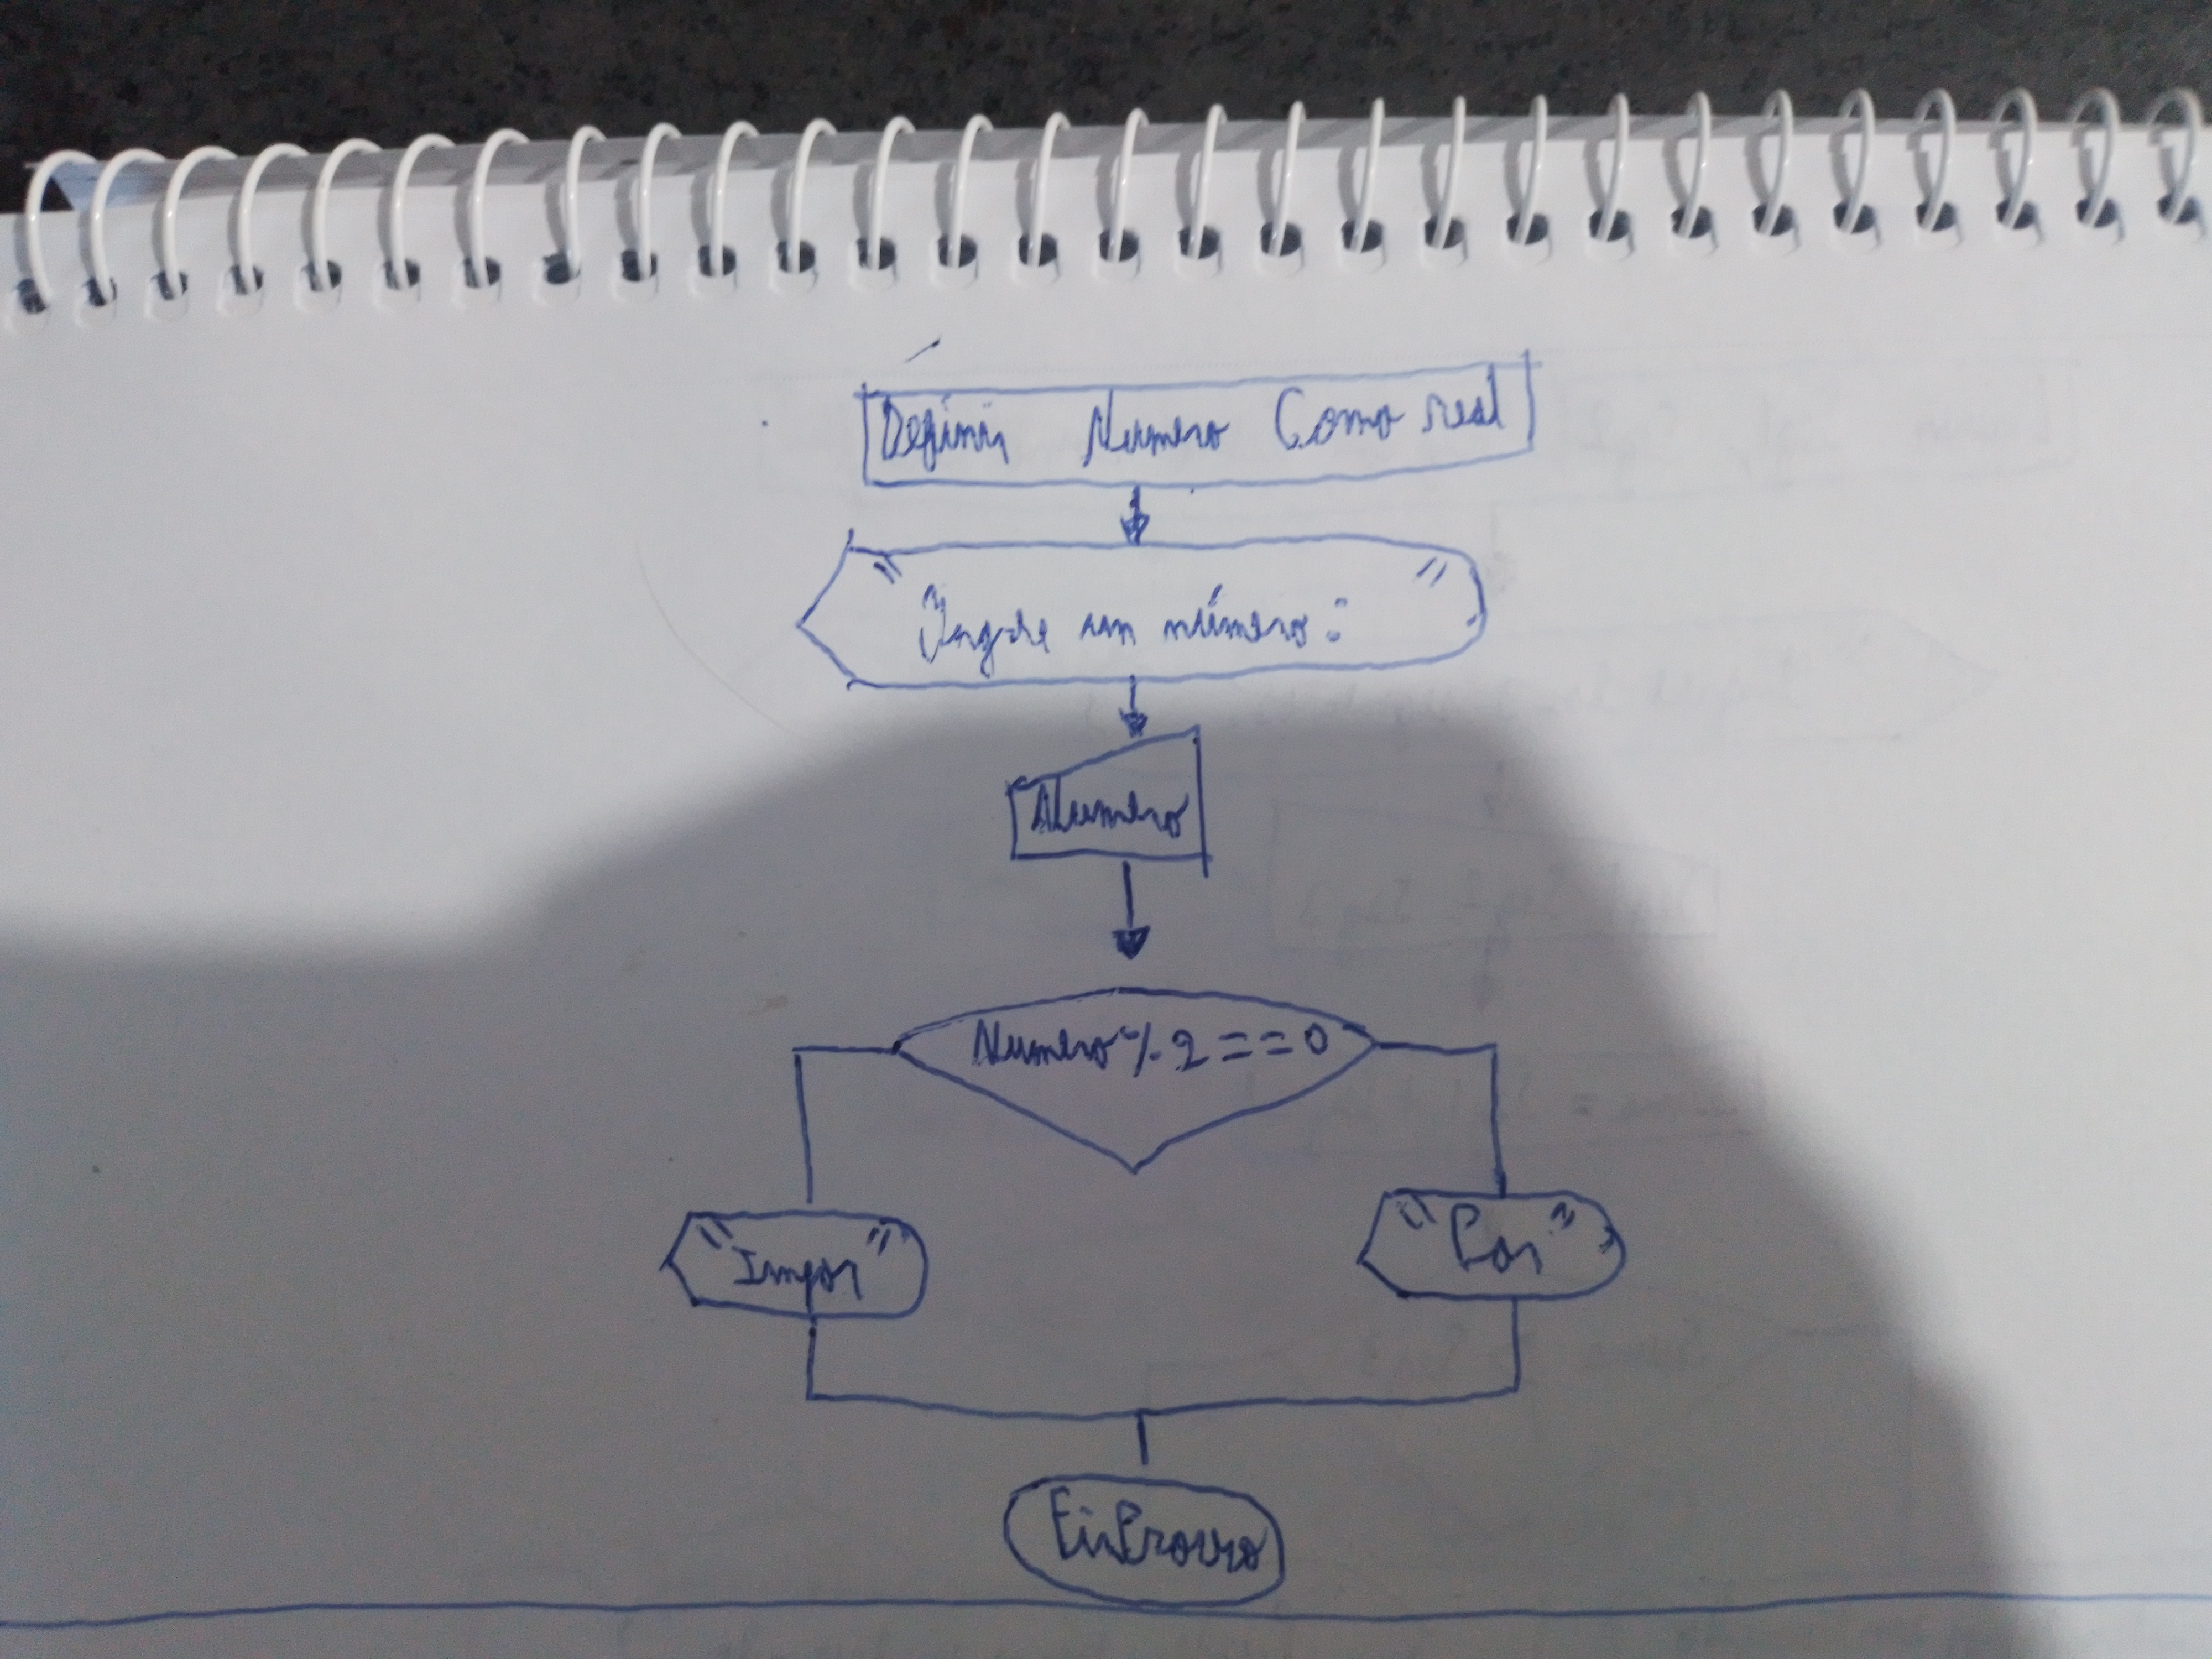 Definir Numero Como real
" Ingrese un número: "
Numero
Numero % 2 == 0
"Impar" "Par"
FinProceso